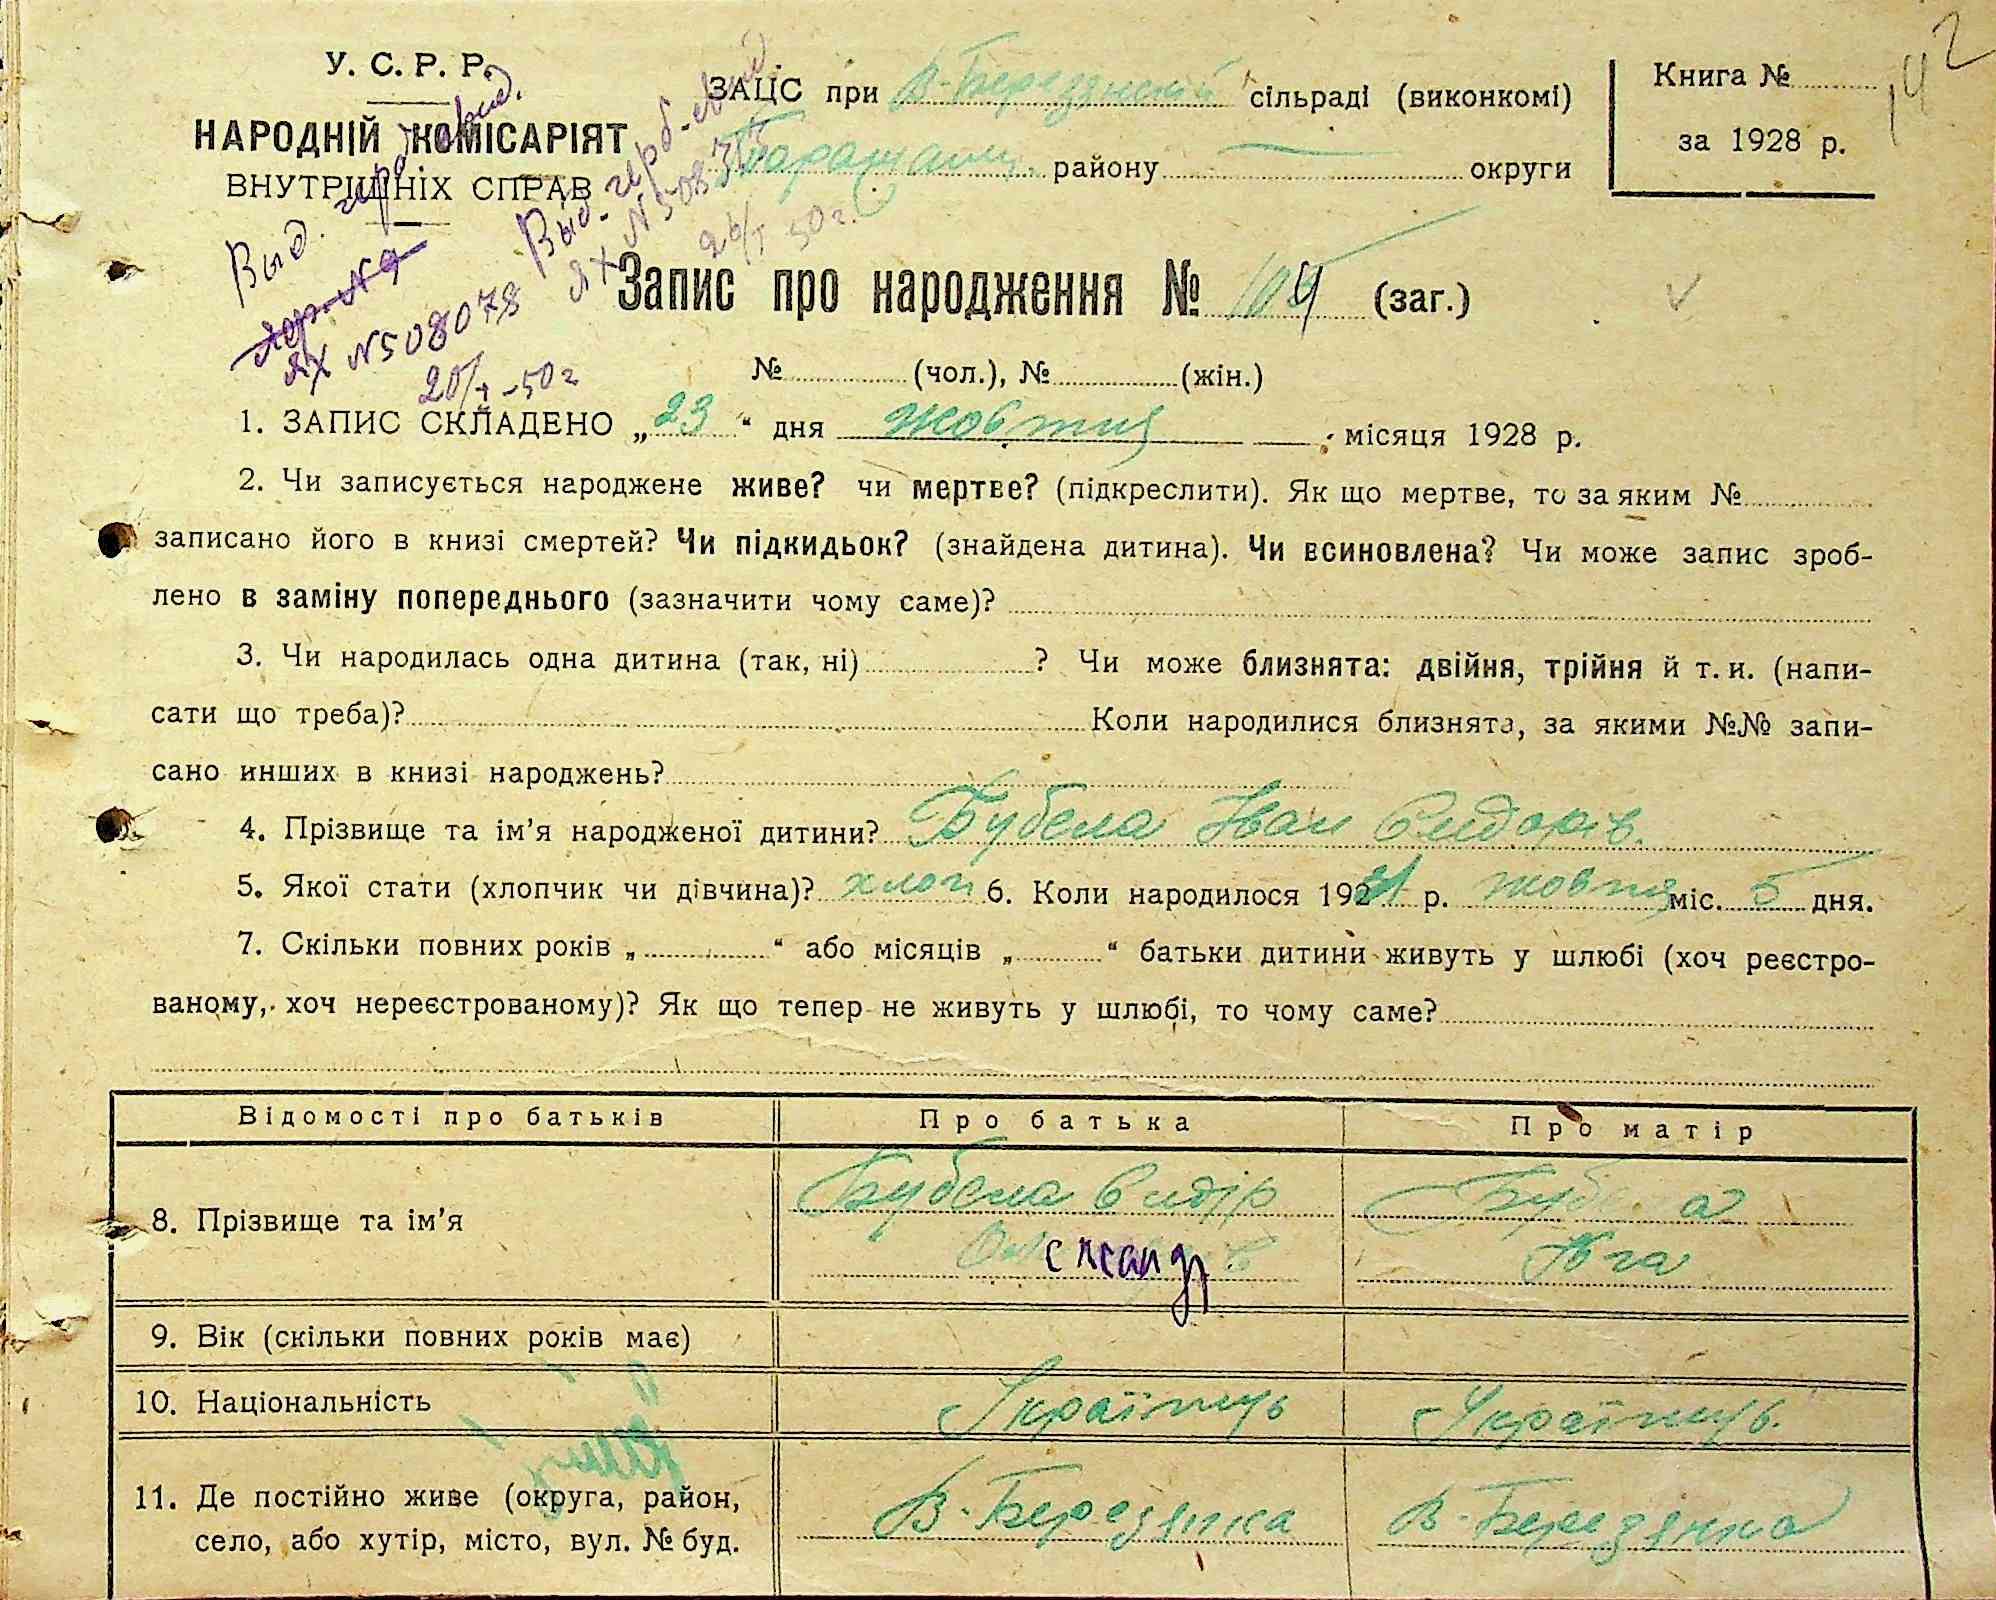 У. С. Р. Р.
НАРОДНІЙ КОМІСАРІЯТ
ВНУТРІШНІХ СПРАВ
ЗАЦС при В-Березянській сільраді (виконкомі)
Таращанськ. району округи
Книга №
за 1928 р.
142
Выд. герб. свид.
ЯХ N 508078
20/X -50 г
Выд. герб.
50 г.
Запис про народження № 104 (заг.)
№ (чол.), № (жін.)
1. ЗАПИС СКЛАДЕНО „23“ дня жовтня місяця 1928 р.
2. Чи записується народжене живе? чи мертве? (підкреслити). Як що мертве, то за яким №
записано його в книзі смертей? Чи підкидьок? (знайдена дитина). Чи всиновлена? Чи може запис зроб-
лено в заміну попереднього (зазначити чому саме)?
3. Чи народилась одна дитина (так, ні) ? Чи може близнята: двійня, трійня й т. и. (напи-
сати що треба)? Коли народилися близнята, за якими №№ запи-
сано инших в книзі народжень?
4. Прізвище та ім'я народженої дитини? Бубела Іван Сидорів.
5. Якої стати (хлопчик чи дівчина)? хлоп 6. Коли народилося 1931 р. жовтня міс. 5 дня.
7. Скільки повних років „ “ або місяців „ “ батьки дитини живуть у шлюбі (хоч реєстро-
ваному, хоч нереєстрованому)? Як що тепер не живуть у шлюбі, то чому саме?
Відомості про батьків Про батька Про матір
8. Прізвище та ім'я Бубела Сидір Бубела
Олександрів Юга
9. Вік (скільки повних років має)
10. Національність Українць Українць.
11. Де постійно живе (округа, район,
село, або хутір, місто, вул. № буд. В-Березянка В-Березянка